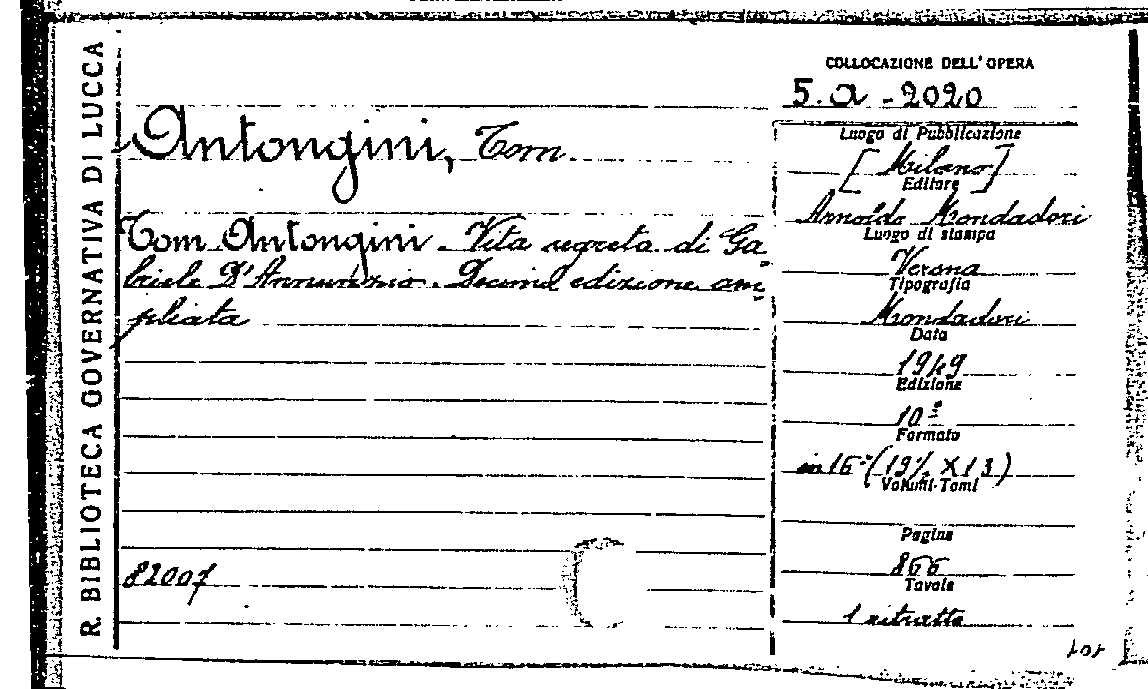 R. BIBLIOTECA GOVERNATIVA DI LUCCA
Antongini, Tom
Tom Antongini - Vita segreta di Ga-
briele D'Annunzio. Decima edizione am-
pliata
82007
COLLOCAZIONE DELL' OPERA
5. a - 2020
Luogo di Pubblicazione
[Milano]
Editore
Arnoldo Mondadori
Luogo di stampa
Verona
Tipografia
Mondadori
Data
1949
Edizione
10ª
Formato
in 16° (19½ X 13)
Volumi-Tomi
Pagine
866
Tavole
1 ritratto